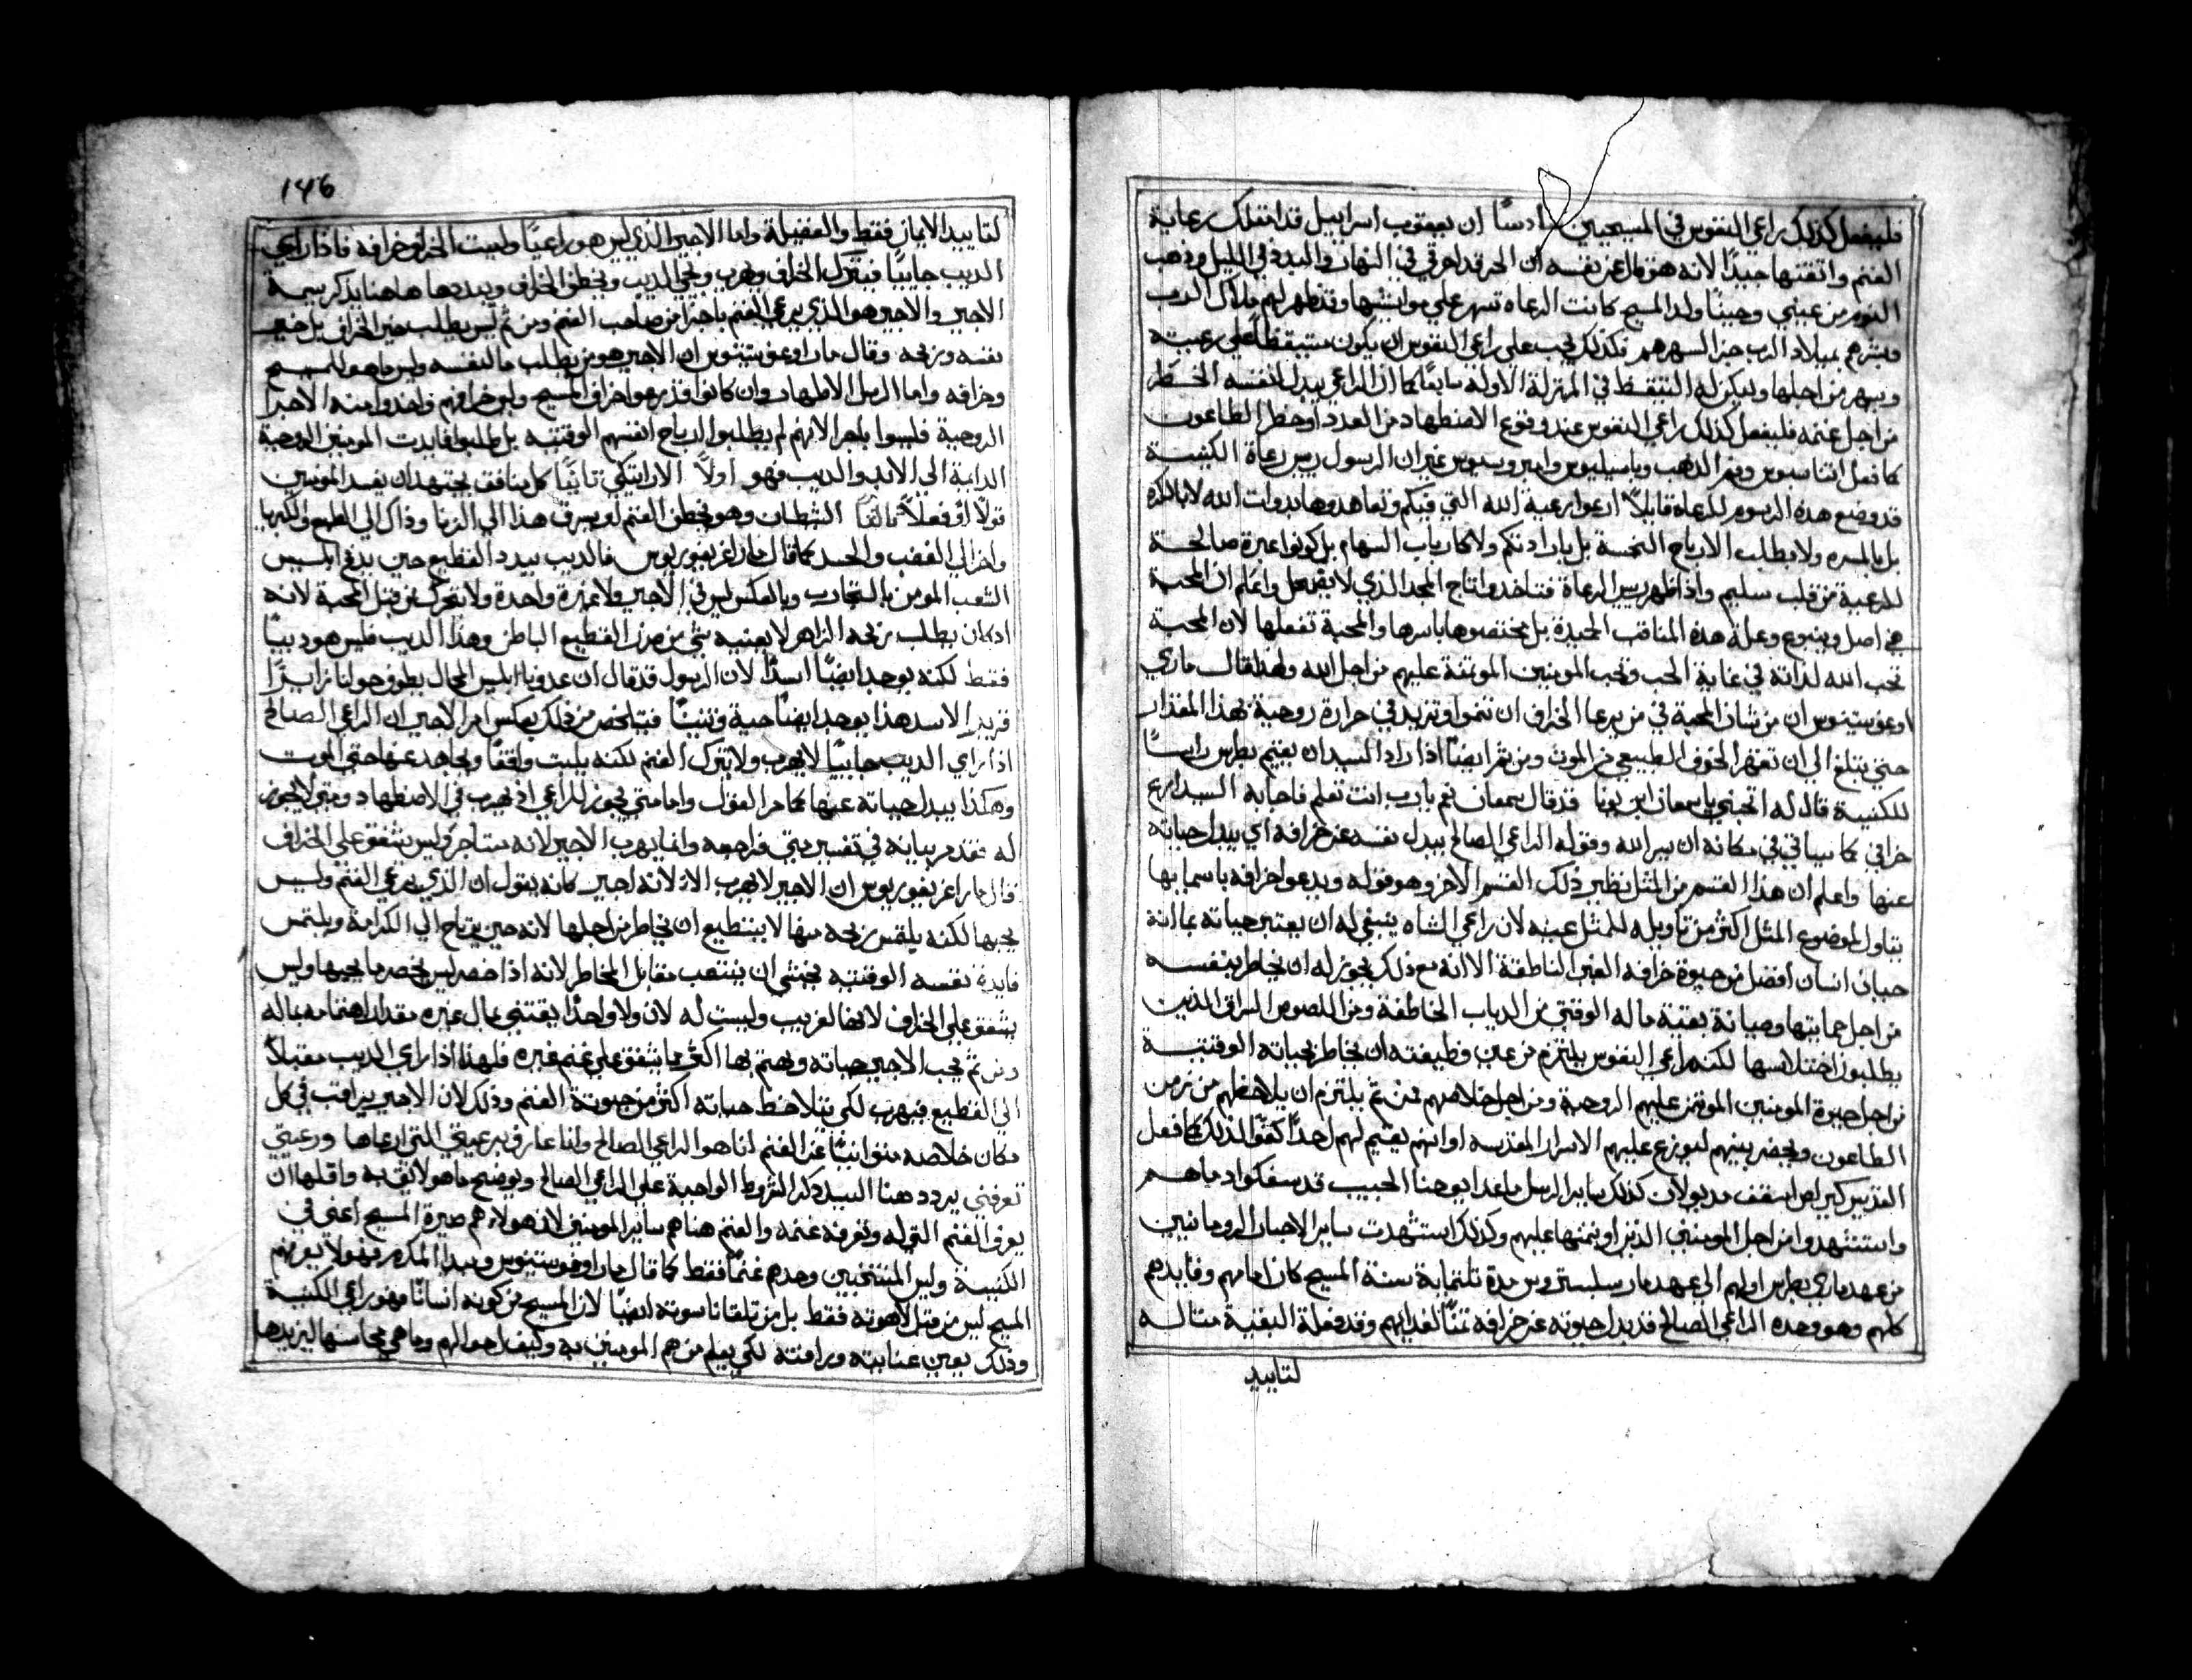 فليفعل كذلك راعي النفوس في المسيحيين سادسًا ان يعقوب اسراييل قد امتلك رعاية
الغنم واتقنها جيدًا لانه هو قال عن نفسه ان الحر قد احرقني في النهار والبرد في الليل وذهب
النوم من عيني وحينا ولد المسيح كانت الرعاه تسهر علي مواشيها وقد ظهر لهم ملاك الرب
وبشرهم بميلاد الرب جزا لسهرهم فكذلك يجب علي راعي النفوس ان يكون متيقظًا علي رعيته
ويسهر من اجلها وليكن له التيقظ في المنزلة الاولة سابعًا كما ان الراعي يبدل لنفسه الخطر
من اجل غنمه فليفعل كذلك راعي النفوس عند وقوع الاضطهاد من العدد او خطر الطاعون
كما فعل اتناسيوس وفم الدهب وباسيليوس وامبروسيوس غير ان الرسول رييس رعاة الكنيسة
قد وضع هذه الرسوم للرعاة قايلاً ارعوا رعية الله التي فيكم وتعاهدوها بذوات الله لا بالكره
بل بالمسره ولا بطلب الارباح النجسة بل بارادتكم ولا كارباب السهام بل كونوا عبرة صالحة
للرعية من قلب سليم واذا ظهر رييس الرعاة فتاخدوا تاج المجد الذي لا يضمحل واعلم ان المحبة
هي اصل وينبوع وعلة هذه المناقب الحميدة بل مختصوها باسرها والمحبة تفعلها لان المحبة
تحب الله لذاته في غاية الحب وتحب المومنين الموتمنة عليهم من اجل الله ولهذا قال ماري
اوغوستينوس ان من شان المحبة في من يرعا الخراف ان تنموا وتزيد في حرارة روحية بهذا المقدار
حتي تبلغ الي ان تقهر الخوف الطبيعي من الموت ومن ثم ايضًا اذا راد السيد ان يقيم بطرس راسًا
للكنيسة قال له اتحبني يا سمعان ابن يونا فقد قال سمعان نعم يا رب انت تعلم فاجابه السيد ارع
خرافي كما سياتي في مكانه ان بير الله وقوله الراعي الصالح يبدل نفسه عن خرافه اي يبدل حياته
عنها واعلم ان هذا القسم من المثل نظير ذلك القسم الاخر وهو قوله ويدعوا خرافه باسمايها
يتاول لموضوع المثل اكثر من تاويله للمثل عينه لان راعي الشاه ينبغي له ان يعتبر حياته بما انه
حياة انسان افضل من حيوة خرافه الغير الناطقة الا انه مع ذلك يجوز له ان يخاطر بنفسه
من اجل حمايتها وصيانة بقية ماله الوقتي من الدياب الخاطفة ومن اللصوص السراق الذين
يطلبون اختلاسها لكنه راعي النفوس يلتزم من عين وظيفته ان يخاطر بحياته الوقتية
من اجل حيوة المومنين الموتمن عليهم الروحية ومن اجل خلاصهم فمن ثم يلتزم ان يلاحظهم من زمن
الطاعون ويحضر بينهم ليوزع عليهم الاسرار المقدسه او انهم يقيم لهم احدًا كفوًا لذلك كما فعل
القديس كيرلص اسقف مديولان كذلك ساير الرسل ما عدا يوحنا الحبيب قد سفكوا دماهم
واستشهدوا من اجل المومنين الذين اوتمنوا عليهم وكذلك استشهدت ساير الاحبار الرومانيين
من عهد ماري بطرس اولهم الي عهد مار سلبستروس مدة تلتماية سنة المسيح كان امامهم وقايدهم
كلهم وهو وحده الراعي الصالح قد بدل حيوته عن خرافه تمنًا لفدايهم وقد فعلة البقية مثاله
لتاييد
146
لتاييد الايمان فقط والفضيلة واما الاجير الذي ليس هو راعيًا وليست الخراف خرافه فاذا راي
الديب جاييًا فيترك الخراف ويهرب ويجي الديب ويخطف الخراف ويبددها هاهنا يذكر سيمة
الاجير والاجير هو الذي يرعي الغنم باجرا من صاحب الغنم ومن ثم ليس يطلب خير الخراف بل خير
نفسه وربحه وقال مار اوغوستينوس ان الاجير هو من يطلب ما لنفسه وليس ما هو للمسيح
وخرافه واما الرسل الاطهار وان كانوا قد رعوا خراف المسيح وليس خرافهم واخدوا منه الاجرا
الروحية فليسوا باجرا لانهم لم يطلبوا ارباح انفسهم الوقتيه بل طلبوا فايدت المومنين الروحية
الدايمة الي الابد والديب فهو اولاً الاراتيكي تانيًا كل منافق يجتهد ان يفسد المومنين
قولاً او فعلاً تالتًا الشيطان وهو يخطف الغنم لو يسرق هذا الي الزنا وذاك الي الطمع والكبريا
واخر الي الغضب والحسد كما قال مار اغريغوريوس فالديب يبدد القطيع حين يدفع ابليس
الشعب المومن بالتجارب وبالعكس ليس في الاجير ولا غيرة واحدة ولا يتحرك من قبل المحبة لانه
اذ كان يطلب ربحه الزاهر لا يعنيه شي من ضرر القطيع الباطن وهذا الديب فليس هو ديبًا
فقط لكنه يوجد ايضًا اسدًا لان الرسول قد قال ان عدونا ابليس المحال يطوف حولنا زايرًا
قريد الاسد هذا يوجد ايضا حية وتنينًا فيتلخص من ذلك بعكس امر الاجير ان الراعي الصالح
اذا راي الديب جاييًا لا يهرب ولا يترك الغنم لكنه يلبت واقفًا ويجاهد عنها حتي الموت
وهكذا يبدل حياته عنها كما مر القول واما متي يجوز للراعي ان يهرب في الاضطهاد ومتي لا يجوز
له تقدم بيانه في تفسير متي فراجعه وانما يهرب الاجير لانه مستأجر وليس يشفق علي الخراف
قال مار اغريغوريوس ان الاجير لا يهرب الا لانه اجير كانه يقول ان الذي يرعي الغنم وليس
يحبها لكنه يلتمس ربحه منها لا يستطيع ان يخاطر من اجلها لانه حين يرتاح الي الكرامة ويلتمس
فايدة نفسه الوقتيه يختشي ان ينتصب مقابل المخاطر لانه اذا خسر ليس يخسر ما يحبها وليس
يشفق علي الخراف لانها لغريب وليست له لان ولا واحدًا يقتني بمال غيره مقدار اهتمامه بماله
ومن ثم يحب الاجير حياته ويهتم بها اكثر مما يشفق علي غنم غيره فلهذا اذا راي الديب مقبلاً
الي القطيع فيهرب لكي يتلاحظ حياته اكثر من حيوتة الغنم وذلك لان الاجير يراقب في كل
مكان خلاصه متوانيًا عن الغنم انا هو الراعي الصالح وانا عارف برعيتي التي ارعاها ورعيتي
تعرفني يردد هنا السيد ذكر الشروط الواجبة علي الراعي الصالح ويوضح ما هو لايق به واقلها ان
يعرف الغنم التي له وتعرفه غنمه والغنم هنا هم ساير المومنين لان هولاء هم صيرة المسيح أعني في
الكنيسة وليس المنتخبين وحدهم غنمًا فقط كما قال مار اوغوستينوس وبيدا المكرم فهولا يعرفهم
المسيح ليس من قبل لاهوته فقط بل من تلقا ناسوته ايضًا لان المسيح من كونه انسانًا فهو راعي الكنيسة
وذلك بعين عنايته ورافته لكي يعلم من هم المومنين به وكيف احوالهم وما هي محاسنها ليزيدها